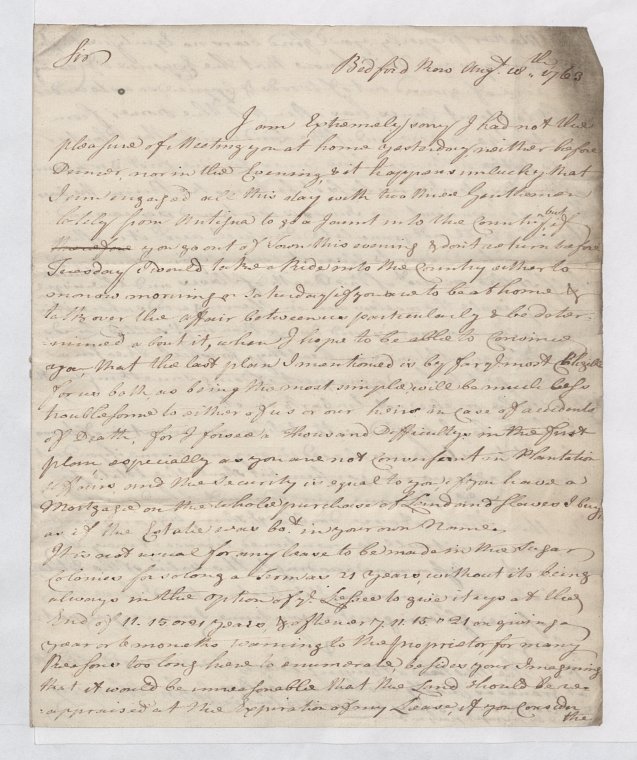 Sir
Bedford Row Augt. 18th. 1763
I am Extremely sorry I had not the
pleasure of Meeting you at home yesterday neither before
Dinner, nor in the Evening, & it happens unlucky that
I am engaged all this day with two three Gentlemen
lately from Antigua to go a Jaunt into the Country, but if
you go out of Town this evening & don't return before
Tuesday I would take a Ride into the Country either to
morrow morning or Saturday if you are to be at home &
talk over the affair between us particularly & be deter-
-mined about it, when I hope to be able to convince
you, that the last plan I mentioned is by far ye. most Eligible
for us both, as being the most simple, will be much less
troublesome to either of us or our heirs in case of accidents
of Death, for I forsee a thousand Difficultys in the first
plan especially as you are not conversant in Plantation
affairs and the Security is equal to you if you have a
Mortgage on the whole purchase of Land and Slaves I buy,
as if the Estate was bot. in your own Name.
It is not usual for any lease to be made in the Sugar
Colonies for so long a Term as 21 years, without its being
always in the option of ye. Lessee to give it up at the
End of 11. 15 or 21 years, & oftener 7, 11. 15 " 21 on giving a
year or 6 months warning to the proprietor for many
Reasons too long here to enumerate, besides your Imagining
that it would be unreasonable that the Land should be re-
-appraised at the Expiration of any Lease, if you Consider
the